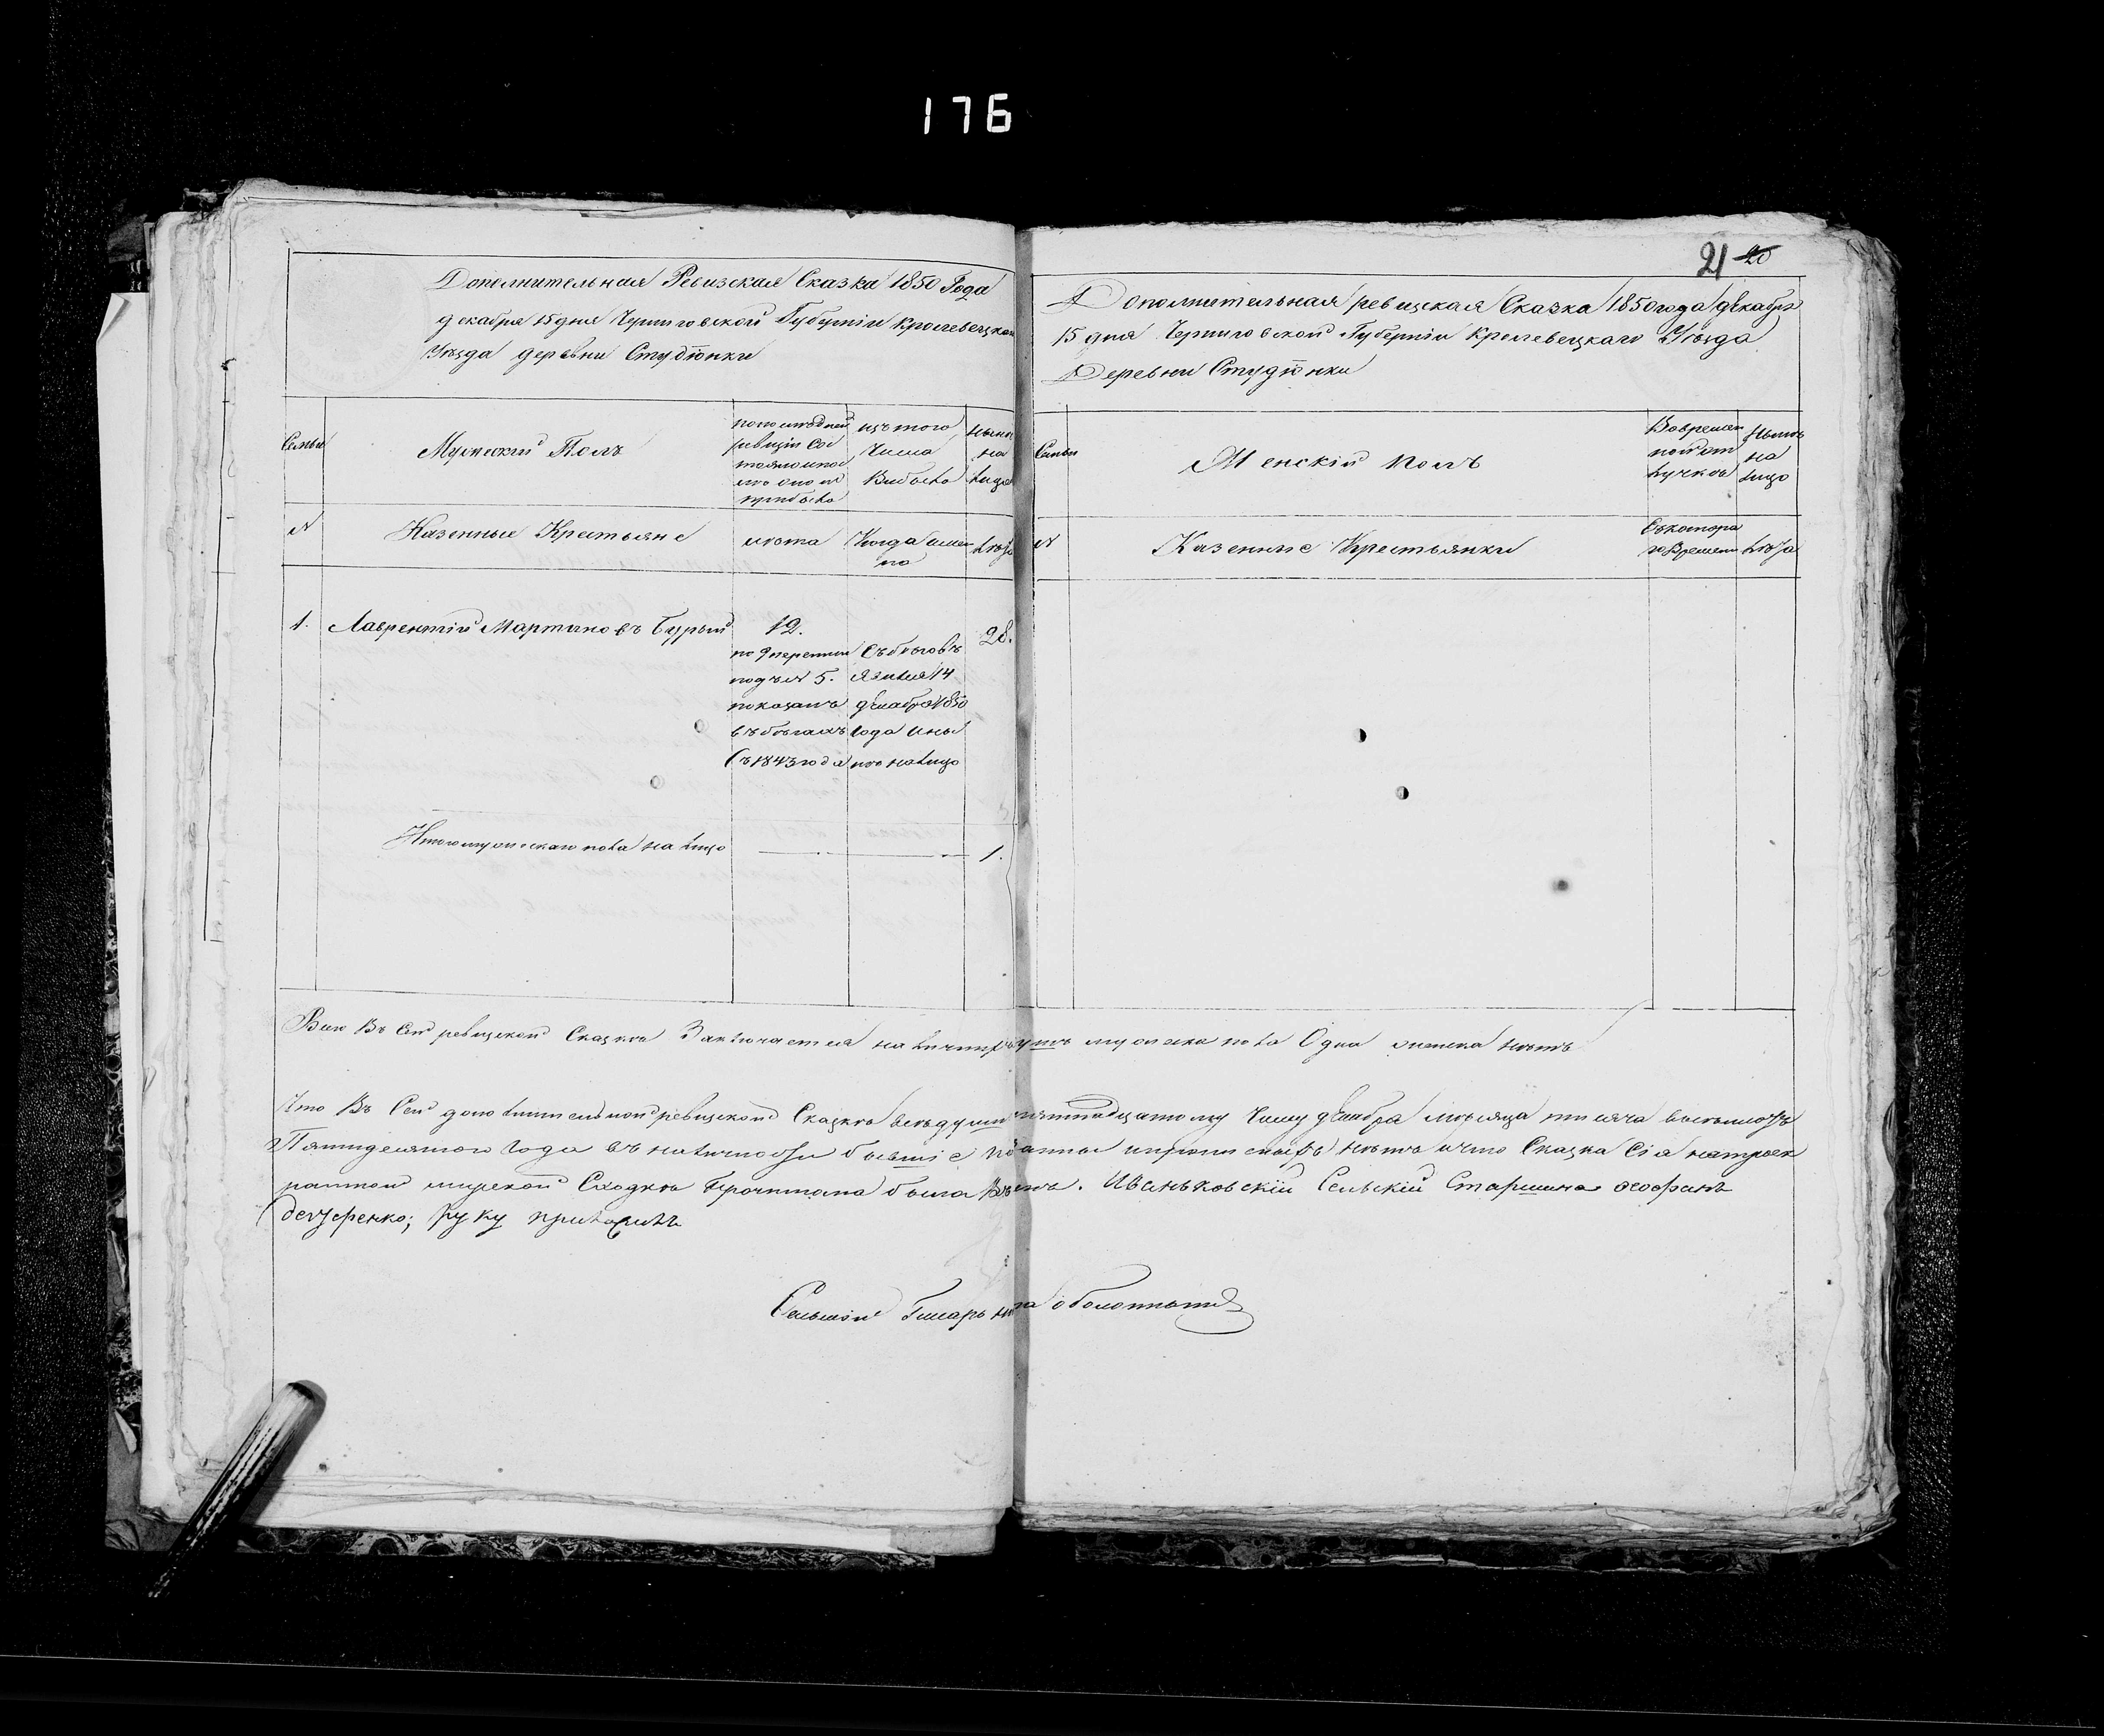 176
Дополнительная Ревизская Сказка 1850 Года
декабря 15 дня Черниговской Губерніи Кролевецкаго
Уѣзда деревни Студіонки
Семьи
Мужескій Полъ
по последней ревизіи Состояло и после оной прибыло
изъ того Числа Выбыло
Ныне на лицо
№
Казенные Крестьяне
лета
Когда имен но
Лета
1.
Лаврентій Мартиновъ Бурый
12.
28.
подъ № 5.
показанъ
въ бегахъ
Съ 1843 года
Съ беговъ
явился 14
декабря 1850
года и ны
не налицо
Итого мужескаго пола на лицо
1.
21 20
Дополнительная ревизская Сказка 1850 года декабря
15 дня Черниговской Губерніи Кролевецкаго Уѣзда
Деревни Студіонки
Семьи
Женскій полъ
Во времен ной отлучкѣ
Ныне на лицо
№
Казенные Крестьянки
Съ котораго Времени
Лета
Всего Въ сей ревизской Сказке Заключается на лицо мужеска пола Одна женска нетъ
Что Въ Сей дополнительной ревизской Сказке все души пятнадцатому Числу декабря месяца тысяча восемсотъ
Пятидесятого Года въ наличности бывшіе нетъ и что Сказка Сія на
мирской Сходке Прочитана была Всемъ. Иваньковскій Сельскій Старшина Феофанъ
руку приложилъ
Сельскій Писарь